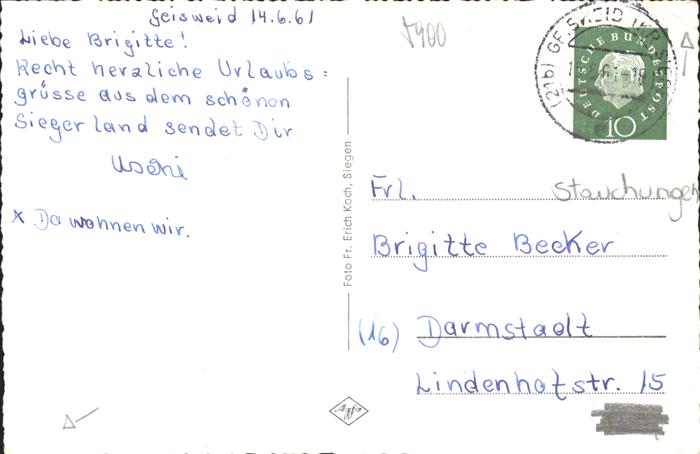 Geisweid 14.6.61
Liebe Brigitte!
Recht herzliche Urlaubs=
grüsse aus dem schönen
Siegerland sendet Dir
Uschi
x Da wohnen wir.
Foto Fr. Erich Koch, Siegen
Agfa
(21b) GEISWEID (KR SIEG
DEUTSCHE BUNDESPOST
10
Frl.
Stauchungen
Brigitte Becker
(16) Darmstadt
Lindenhofstr. 15